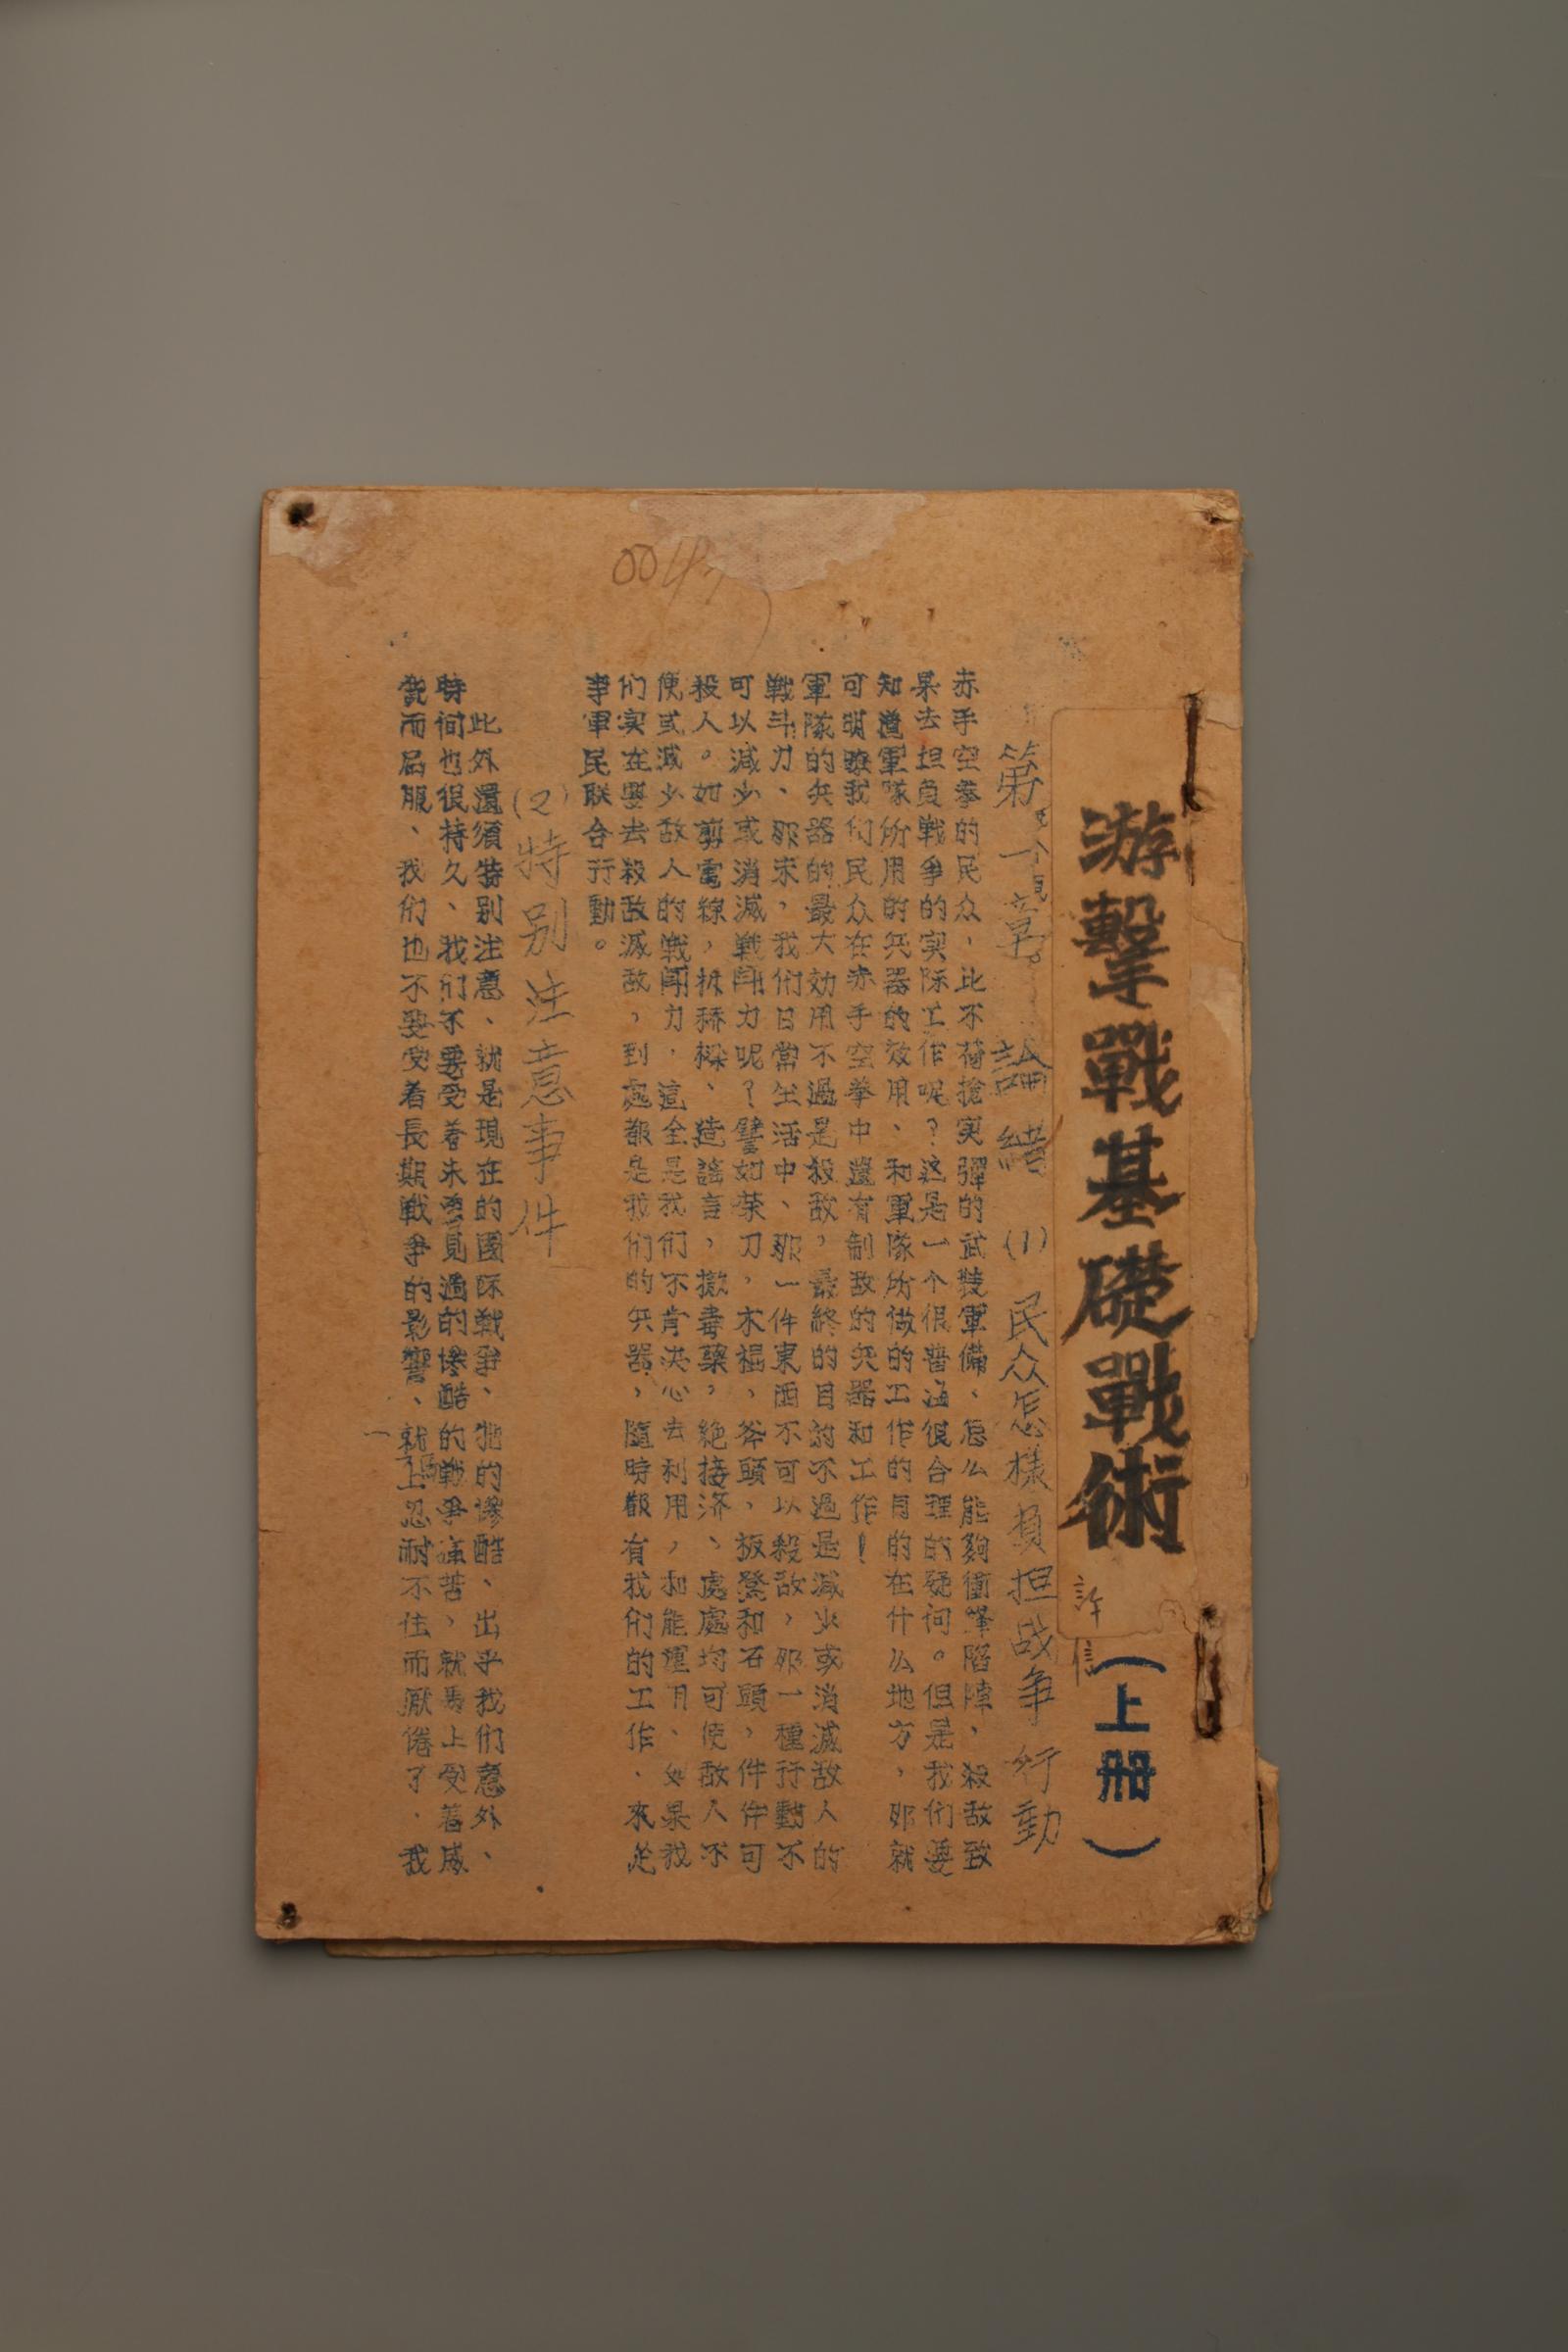 游擊戰基礎戰術
(上册)
許信
第一章。 論緒 (1) 民众怎樣負担战争行動
赤手空拳的民众，比不荷搶实彈的武裝軍備、怎么能夠衝鋒陷陣，殺敌致
果去担負戰争的实际工作呢？这是一个很普通很合理的疑问。但是我们要
知道軍隊所用的兵器的效用、和軍隊所做的工作的目的在什么地方，那就
可明瞭我们民众在赤手空拳中還有制敌的兵器和工作！
軍隊的兵器的最大効用不過是殺敌，最終的目的不過是减少或消滅敌人的
戰斗力、那末，我们日常生活中、那一件東西不可以殺敌，那一種行動不
可以減少或消滅戰鬥力呢？譬如菜刀，木棍，斧頭，板凳和石頭，件件可
殺人。如剪電線，拆桥樑、造謠言，撒毒藥，絕接济、處處均可使敌人不
便或減少敌人的戰鬥力，這全是我们不肯决心去利用，和能運用、如果我
们实在要去殺敌滅敌，到處都是我们的兵器，隨時都有我们的工作．來从
事軍民联合行動。
(2) 特别注意事件
此外還須特别注意、就是現在的國际戰争、牠的慘酷、出乎我们意外、
時间也很持久、我们不要受着未曾見過的慘酷的戰争痛苦，就馬上受着威
脅而屈服、我们也不要受着長期戰争的影響、就馬上忍耐不住而厭倦了．我
一